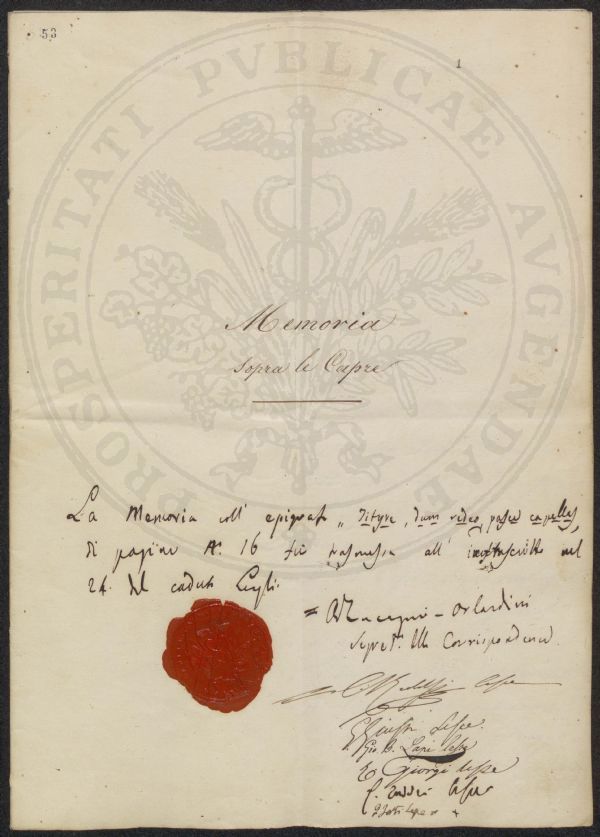 53
1
PROSPERITATI PVBLICAE AVGENDAE
Memoria
sopra le Capre
La Memoria coll' epigrafe „ Tityre, dum redeo, pasce capellas,
di pagine N.° 16 fu trasmessa all' infrascritto nel
24 del caduto Luglio.
Orlandini
Segret.° della Corrispondenza
lesse
Giusti Lesse.
Gio B. Lani lesse
Giorgi lesse
lesse